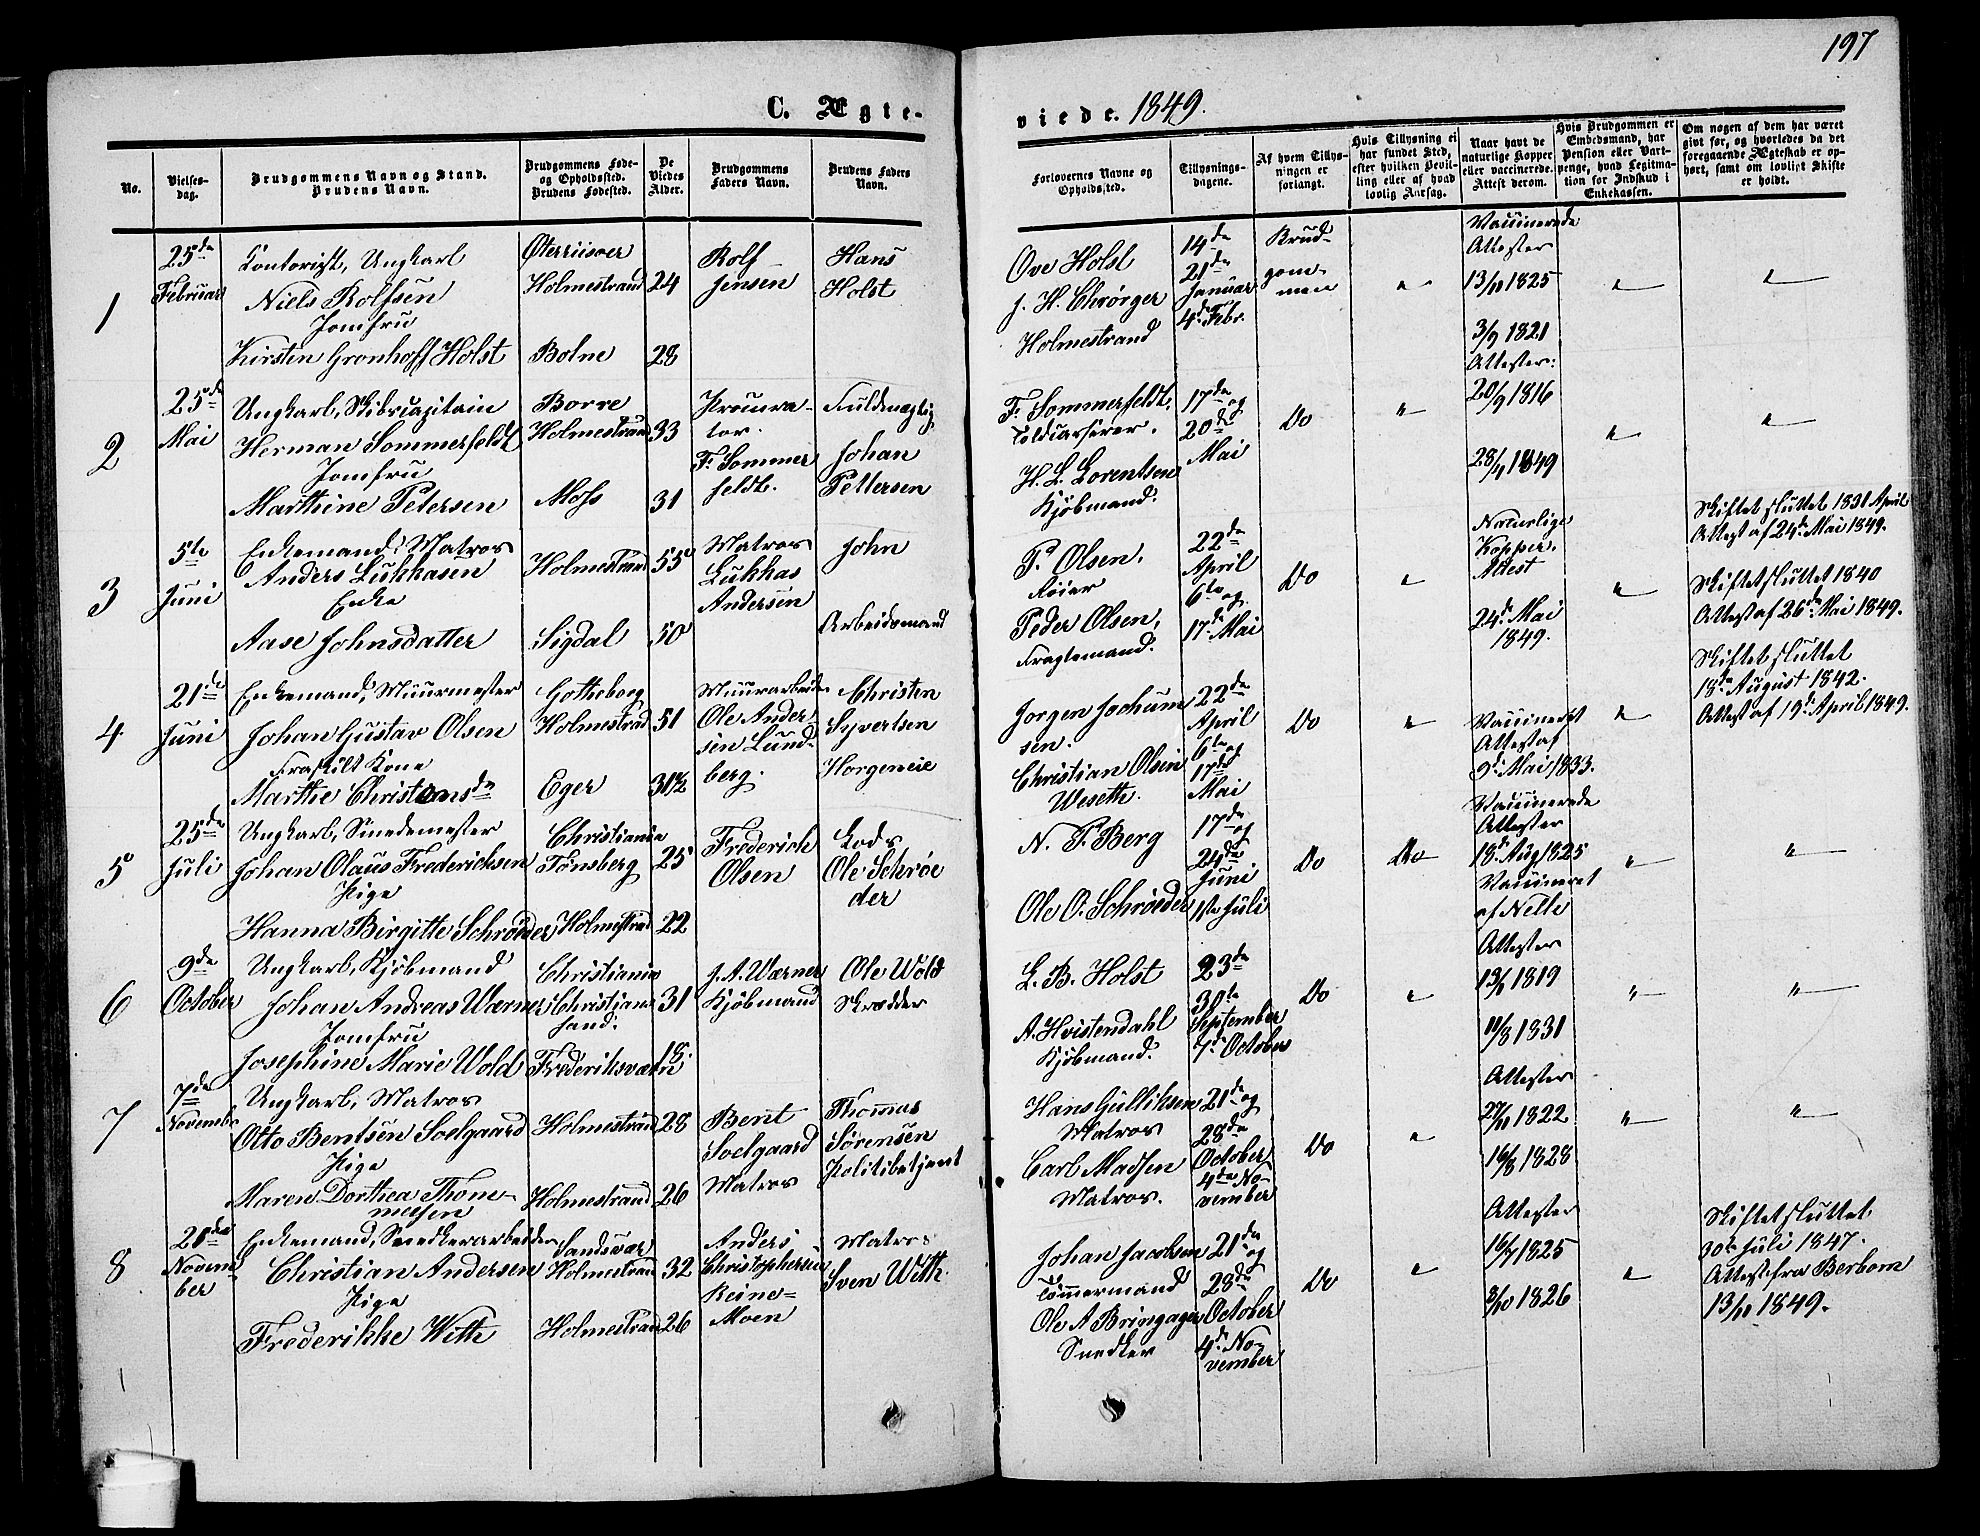 197
C. Ægte-
viede. 1849.
No.
Vielses-
dag.
Brudgommens Navn og Stand.
Brudens Navn.
Brudgommens Føde-
og Opholdssted.
Brudens Fødested.
De
Viedes
Alder.
Brudgommens
Faders Navn.
Brudens Faders
Navn.
Forlovernes Navne og
Opholdssted.
Tillysnings-
dagene.
Af hvem Tillys-
ningen er
forlangt.
Hvis Tillysning ei
har fundet Sted,
efter hvilken Bevil-
ling eller af hvad
lovlig Aarsag.
Naar havt de
naturlige Kopper
eller vaccinerede.
Attest derom.
Hvis Brudgommen er
Embedsmand, har
Pension eller Vart-
penge, hvad Legitima-
tion for Indskud i
Enkekassen.
Om nogen af dem har været
givt før, og hvorledes da det
foregaaende Ægteskab er op-
hørt, samt om lovligt Skifte
er holdt.
1
25de
Februar
Contorist, Ungkarl
Niels Rolfsen
Jomfru
Kirsten Gronhoff Holst
Øterriisoer
Holmestrand
Botne
24
28
Rolf
Jensen
Hans
Holst
Ove Holst
J. H. Chrørger
Holmestrand
14de
21de
Januar
4de Febr.
Brud-
gom-
men
"
Vaccinerede
Attester
13/11 1825
3/9 1821
"
"
2
25de
Mai
Ungkarl, Skibscapitain
Herman Sommerfeldt
Jomfru
Marthine Petersen
Borre
Holmestrand
Moss
33
31
Procura-
tor.
F. Sommer
feldt.
Fuldmægtig
Johan
Pettersen
F. Sommerfeldt,
Toldcasserer.
H. L. Lorentsen
Kjöbmand.
17de og
20de
Mai
Do
"
Attester:
20/9 1816
28/4 1849
"
"
3
5te
Juni
Enkemand, Matros
Anders Lukkasen
Enke
Aase Johnsdatter
Holmestrand
Sigdal
55
50
Matros
Lukkas
Andersen
John
Arbeidsmand
P. Olsen,
Føier
Peder Olsen,
Fragtemand.
22de
April
6te og
17de Mai
Do
"
Naturlige
Kopper.
Attest
24de Mai
1849.
"
Skiftet sluttet 1831 April
Attest af 24de Mai 1849.
Skiftet sluttet 1840
Attest af 26de Mai 1849.
4
21de
Juni
Enkemand, Muurmester
Johan Gustav Olsen
Fraskilt Kone
Marthe Christensda
Gotheborg
Holmestrad
Eger
51
31½
Muurarbeider
Ole Ander
sen Lund-
berg.
Christen
Syvertsen
Horgeneie
Jorgen Jochum
sen.
Christian Olsen
Weseth.
22de
April
6te og
17de
Mai
Do
"
Vaccineret
Attest af
9de Mai 1833.
"
Skiftet sluttet
18de August 1842.
Attest af 19de April 1849.
5
25de
Juli
Ungkarl, Smedemester
Johan Olaus Fredericksen
Pige
Hanna Birgitte Schröder
Christiania
Tönsberg
Holmestrad
25
22
Frederich
Olsen
Lods
Ole Schrøe
der
N. P. Berg
Ole O. Schröeder
17de og
24de
Juni
1ste Juli
Do
Do
Vaccinerede
Attester
18de Aug 1825
Vaccineret
af Nelle
"
"
6
9de
October
Ungkarl, Kjöbmand
Johan Andreas Wærner
Jomfru
Josephine Marie Wold
Christiania
Christian-
sand.
Frederiksværn
31
18.
J. A. Wærner
Kjöbmand
Ole Wold
Skrædder
L. B. Holst
A. Hvistendahl
Kjöbmand.
23de
30te
September
7de October
Do
"
Attester
13/1 1819
11/8 1831
"
"
7
7de
Novembr
Ungkarl, Matros
Otto Bentsen Soelgaard
Pige
Maren Dorthea Thom-
mesen
Holmestrand
Holmestrand
28
26
Bent
Soelgaard
Matros
Thommas
Sörensen
Politibetjent
Hans Gulliksen
Matros
Carl Madsen
Matros.
21de og
28de
October
4de No-
vember
Do
"
Attester
27/11 1822
16/8 1828
"
"
8
21de
Novem-
ber
Enkemand, Snedkerarbeider
Christian Andersen
Pige
Frederikke With
Sandsvær
Holmestrand
Holmestrand
32
26
Anders
Christophersen
Reine-
Moen
Matros
Sven With
Johan Jacobsen
Tømmermand
Ole A Bringager
Snedker
21de og
28de
October
4de No-
vember
Do
"
Attester
16/7 1825
3/10 1826
"
Skiftet sluttet
30te Juli 1847.
Attest fra Berbom
13/11 1849.